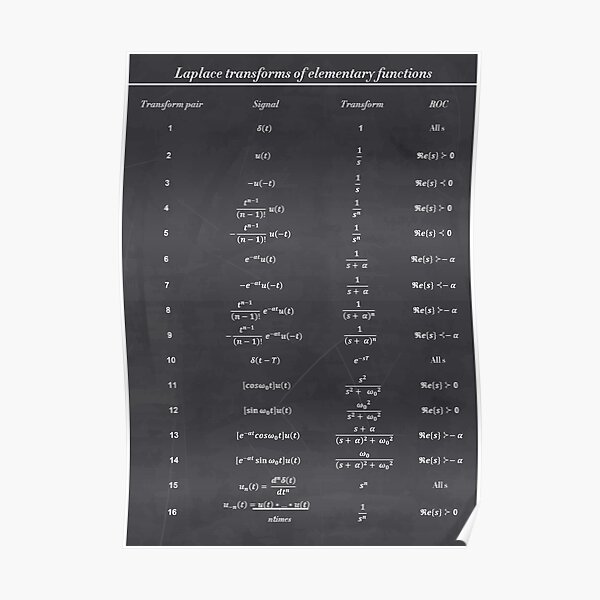 Laplace transforms of elementary functions
Transform pair Signal Transform ROC
1 δ(t) 1 All s
2 u(t) 1/s ℜe{s} ≻ 0
3 −u(−t) 1/s ℜe{s} ≺ 0
4 t^{n−1}/(n−1)! u(t) 1/s^n ℜe{s} ≻ 0
5 −t^{n−1}/(n−1)! u(−t) 1/s^n ℜe{s} ≺ 0
6 e^{−αt}u(t) 1/(s + α) ℜe{s} ≻ −α
7 −e^{−αt}u(−t) 1/(s + α) ℜe{s} ≺ −α
8 t^{n−1}/(n−1)! e^{−αt}u(t) 1/(s + α)^n ℜe{s} ≻ −α
9 −t^{n−1}/(n−1)! e^{−αt}u(−t) 1/(s + α)^n ℜe{s} ≺ −α
10 δ(t − T) e^{−sT} All s
11 [cosω₀t]u(t) s²/(s² + ω₀²) ℜe{s} ≻ 0
12 [sin ω₀t]u(t) ω₀²/(s² + ω₀²) ℜe{s} ≻ 0
13 [e^{−αt}cosω₀t]u(t) (s + α)/((s + α)² + ω₀²) ℜe{s} ≻ −α
14 [e^{−αt} sin ω₀t]u(t) ω₀/((s + α)² + ω₀²) ℜe{s} ≻ −α
15 uₙ(t) = d^nδ(t)/dt^n s^n All s
16 u₋ₙ(t) = u(t) ∗ … ∗ u(t) 1/s^n ℜe{s} ≻ 0
ntimes